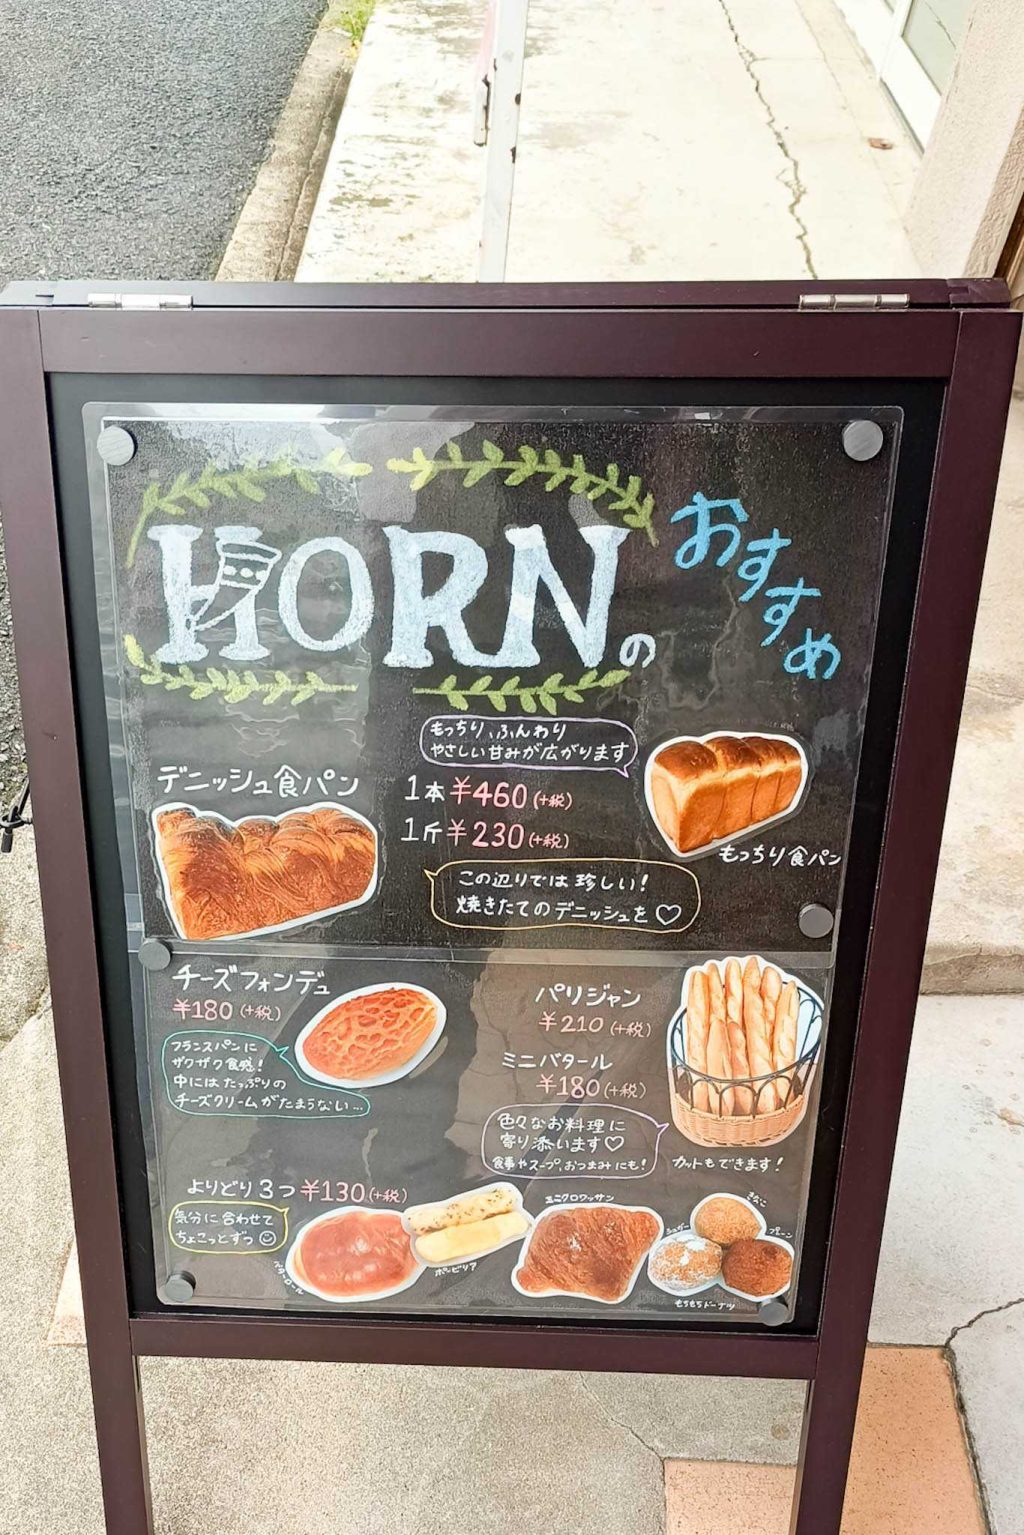 HORNの
おすすめ
もっちり、ふんわり
やさしい甘みが広がります
デニッシュ食パン
1本¥460(+税)
1斤¥230(+税)
もっちり食パン
この辺りでは珍しい!
焼きたてのデニッシュを♡
チーズフォンデュ
¥180(+税)
フランスパンに
ザクザク食感!
中にはたっぷりの
チーズクリームがたまらない…
パリジャン
¥210(+税)
ミニバタール
¥180(+税)
色々なお料理に
寄り添います♡
食事やスープ、おつまみにも!
カットもできます!
よりどり3つ¥130(+税)
気分に合わせて
ちょこっとずつ☺
バターロール
ポンビリア
ミニクロワッサン
きなこ
シュガー
プレーン
もちもちドーナツ